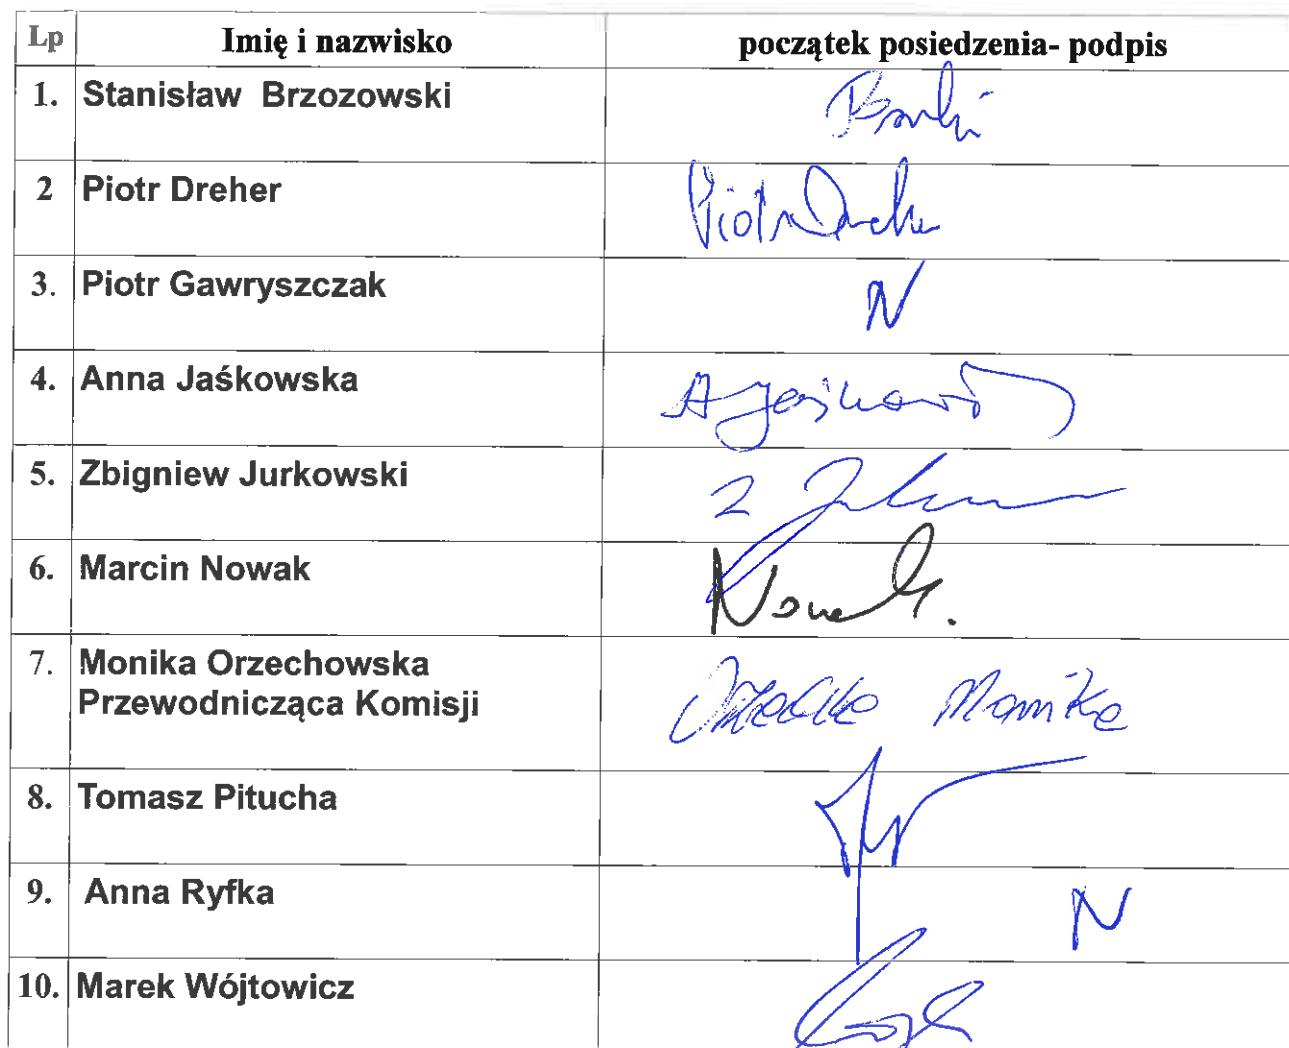 Lp Imię i nazwisko początek posiedzenia- podpis
1. Stanisław Brzozowski
2 Piotr Dreher Piotr
3. Piotr Gawryszczak N
4. Anna Jaśkowska A
5. Zbigniew Jurkowski
6. Marcin Nowak Nowak.
7. Monika Orzechowska
Przewodnicząca Komisji Monika
8. Tomasz Pitucha
9. Anna Ryfka N
10. Marek Wójtowicz